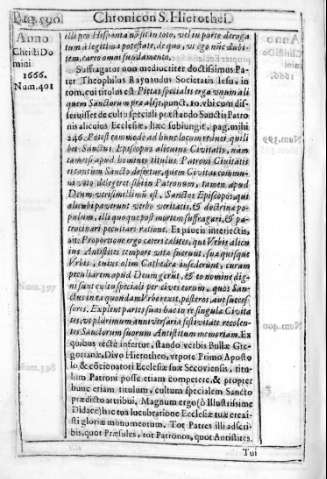 Pag. 590. Chronicon S. Hierothei.
Anno
Christi Do
mini
1666.
Num. 401
illi pro Hispania possit in toto, vel in parte deroga
tum à legitima potestate, de quo, vt ego nec dubi-
tem, careo omni fundamento.
Suffragatur non mediocriter doctissimus Pa-
ter Theophilus Raynaudus Societatis Iesu, in
tom. cui titulus est Pietas specialis erga vnum ali
quem Sanctorum præ alijs, punct. 10. vbi cum dis-
seruisset de cultu speciali præstando Sanctis Patro
nis alicuius Ecclesiæ, hæc subiungit, pag. mihi
246. Potest tamen ad hunc locum reuocari, quili
bet Sanctus Episcopus alicuius Ciuitatis, nam
tametsi apud homines titulus Patroni Ciuitatis
eiusdem Sancto desit, quem Ciuitas commu-
ni voto delegeret sibi in Patronum, tamen apud
Deum verisimillimum est, Sanctos Episcopos, qui
alicubi pauerunt verbo veritatis, & doctrina po-
pulum, illi quoque post mortem suffragari, & pa-
trocinari peculiari ratione. Et paucis interiectis,
ait: Proportione ergo cæteri cælites, qui Vrbis alicu
ius Antistites tempore vitæ fuerunt, sua quisque
Vrbis, cuius olim Cathedra insederunt, curam
peculiarem apud Deum gerunt, & eo nomine dig-
ni sunt cultu speciali per ciues eorum, quos San-
ctus in ea quondam Vrbe rexit, posteros, aut succes-
sores. Explent partes suas hac in re singulæ Ciuita
tes, vt plurimum anniuersaria festiuitate recolen-
tes Sanctorum suorum Antistitum memoriam. Ex
quibus rectè infertur, stando verbis Bullæ Gre-
gorianæ, Diuo Hierotheo, vtpote Primo Aposto
lo, & conditori Ecclesiæ suæ Secouiensis, titu-
lum Patroni posse etiam competere, & propter
hunc etiam titulum, cultum specialem Sancto
prædicto attribui. Magnum ergo (ò Illustrissime
Didace) hic tua lucubratione Ecclesiæ tuæ creai-
sti gloriæ monumentum. Tot Patres illi adscri-
bis, quot Præsules, tot Patronos, quot Antistites.
Tui